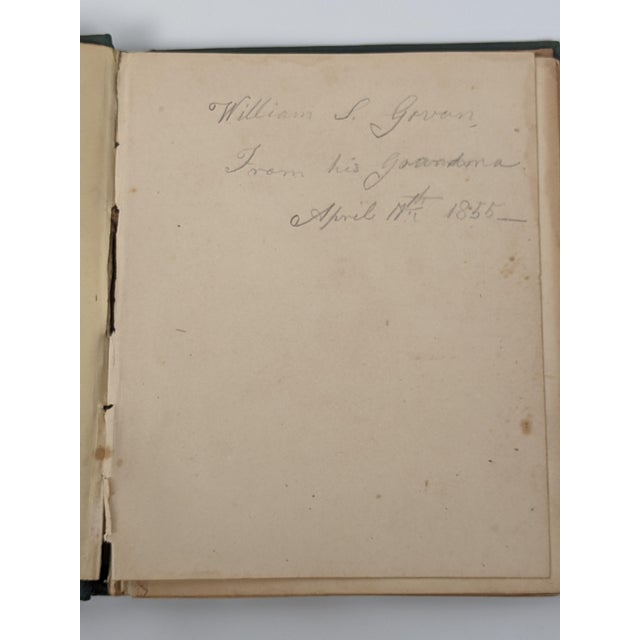 William S. Govan,
From his Grandma
April 17th 1855